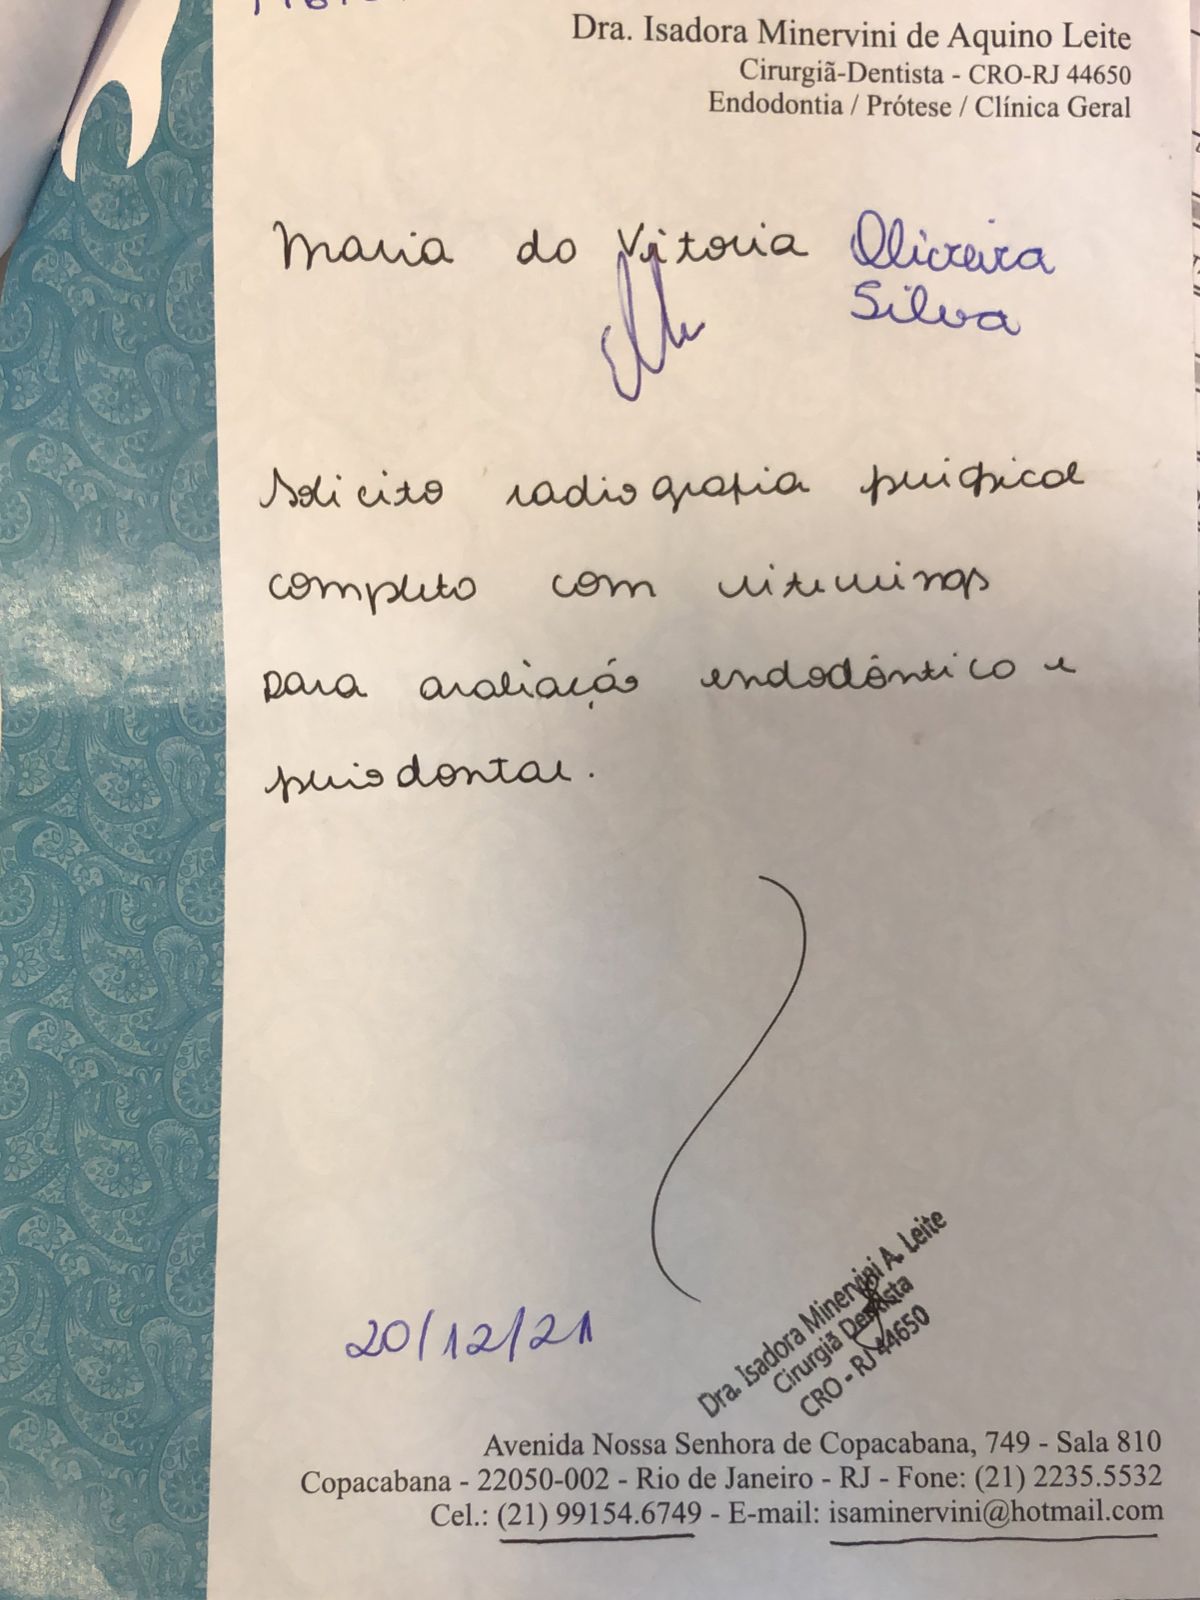 Dra. Isadora Minervini de Aquino Leite
Cirurgiã-Dentista - CRO-RJ 44650
Endodontia / Prótese / Clínica Geral
Maria do Vitoria Oliveira
Silva
Solicito radiografia periapical
completo com interproximais
para avaliação endodôntico e
periodontal.
20/12/21
Dra. Isadora Minervini A. Leite
Cirurgiã Dentista
CRO - RJ 44650
Avenida Nossa Senhora de Copacabana, 749 - Sala 810
Copacabana - 22050-002 - Rio de Janeiro - RJ - Fone: (21) 2235.5532
Cel.: (21) 99154.6749 - E-mail: isaminervini@hotmail.com